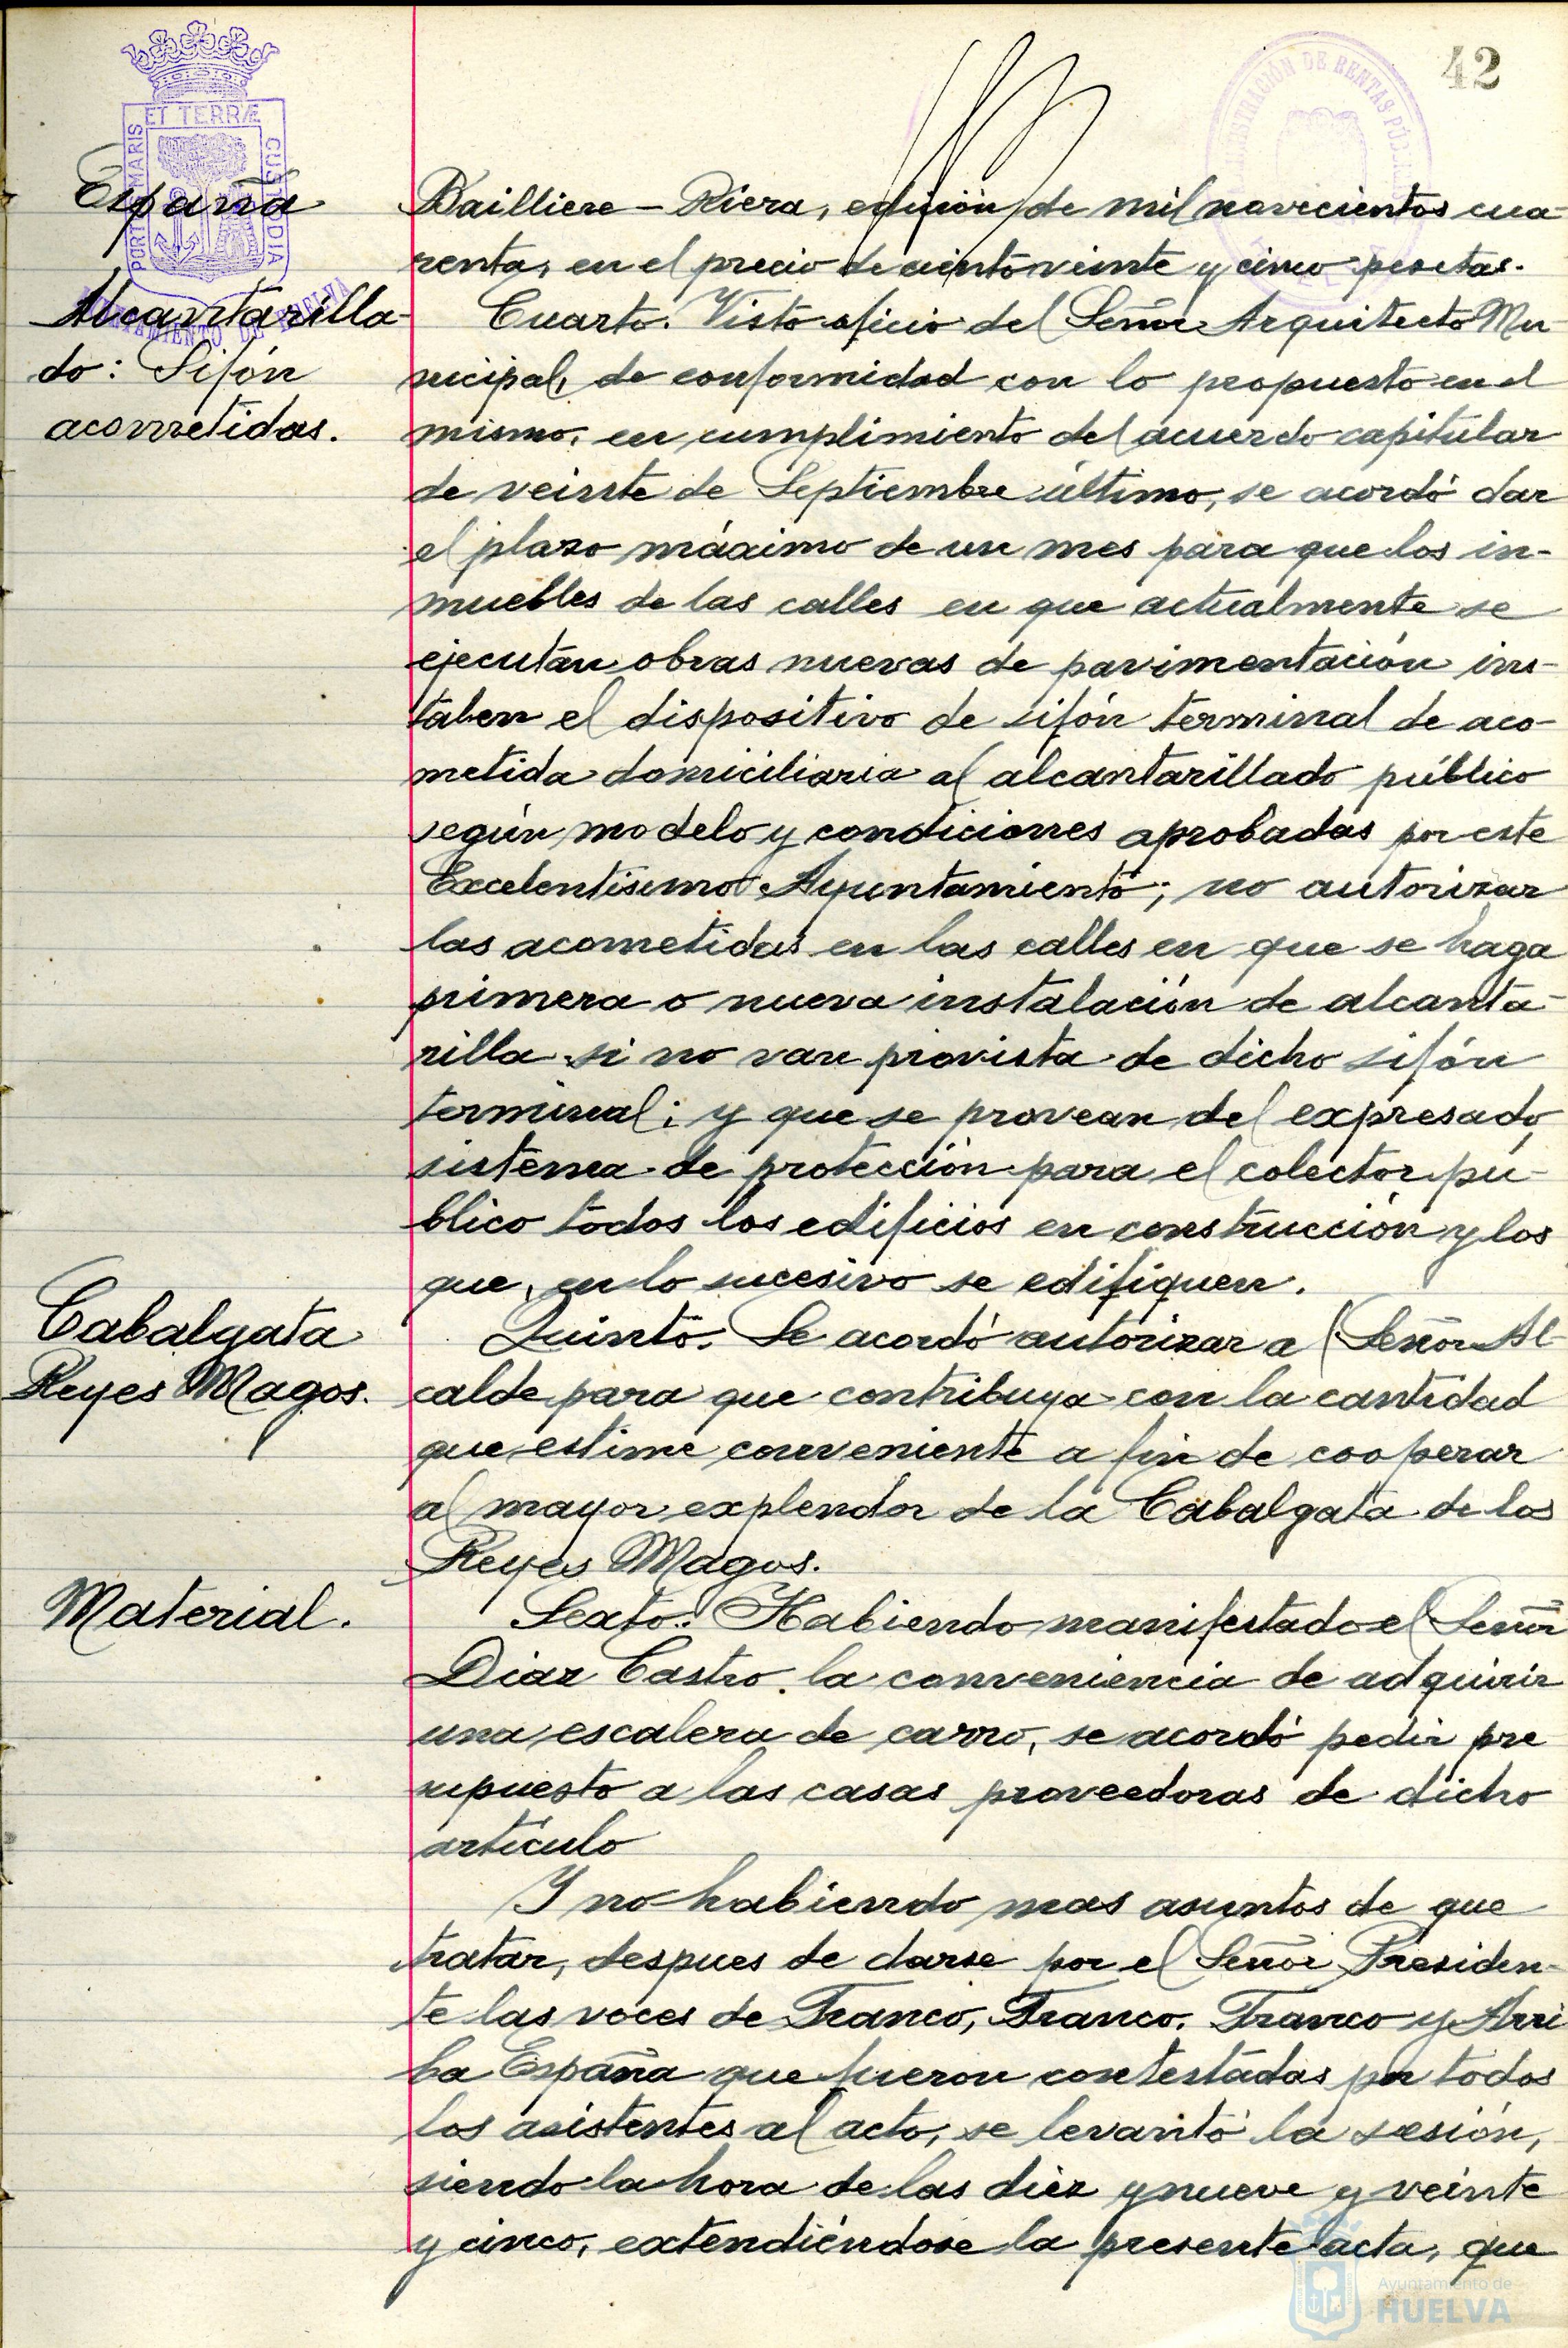 42
PORTUS MARIS ET TERRÆ CUSTODIA
AYUNTAMIENTO DE HUELVA
ADMINISTRACIÓN DE RENTAS PÚBLICAS
España
Bailliere - Riera, edición de mil novecientos cua-
renta, en el precio de ciento veinte y cinco pesetas.
Alcantarilla-
do: Sifón
acometidas.
Cuarto. Visto oficio del Señor Arquitecto Mu-
nicipal, de conformidad con lo propuesto en el
mismo, en cumplimiento del acuerdo capitular
de veinte de Septiembre último, se acordó dar
el plazo máximo de un mes para que los in-
muebles de las calles en que actualmente se
ejecutan obras nuevas de pavimentación ins-
talen el dispositivo de sifón terminal de aco-
metida domiciliaria al alcantarillado público
según modelo y condiciones aprobadas por este
Excelentísimo Ayuntamiento; no autorizar
las acometidas en las calles en que se haga
primera o nueva instalación de alcanta-
rilla si no van provista de dicho sifón
terminal; y que se provean del expresado
sistema de protección para el colector pú-
blico todos los edificios en construcción y los
que, en lo sucesivo se edifiquen.
Cabalgata
Reyes Magos.
Quinto. Se acordó autorizar al Señor Al-
calde para que contribuya con la cantidad
que estime conveniente a fin de cooperar
al mayor explendor de la Cabalgata de los
Reyes Magos.
Material.
Sexto. Habiendo manifestado el Señor
Diaz Castro la conveniencia de adquirir
una escalera de carro, se acordó pedir pre
supuesto a las casas proveedoras de dicho
artículo
Y no habiendo mas asuntos de que
tratar, despues de darse por el Señor Presiden-
te las voces de Franco, Franco, Franco y Arri
ba España que fueron contestadas por todos
los asistentes al acto, se levantó la sesión,
siendo la hora de las diez y nueve y veinte
y cinco, extendiéndose la presente acta, que
Ayuntamiento de
HUELVA